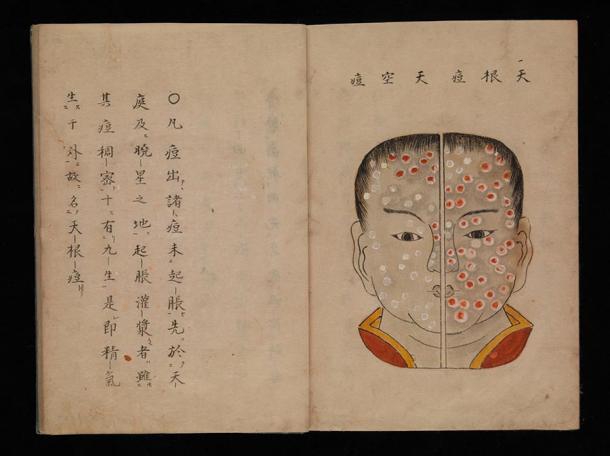 一天根痘 天空痘
〇凡痘出諸痘未起脹先於天
庭及曉星之地起脹灌漿者雖
其痘稠密十有九生是即精氣
生于外故名天根痘